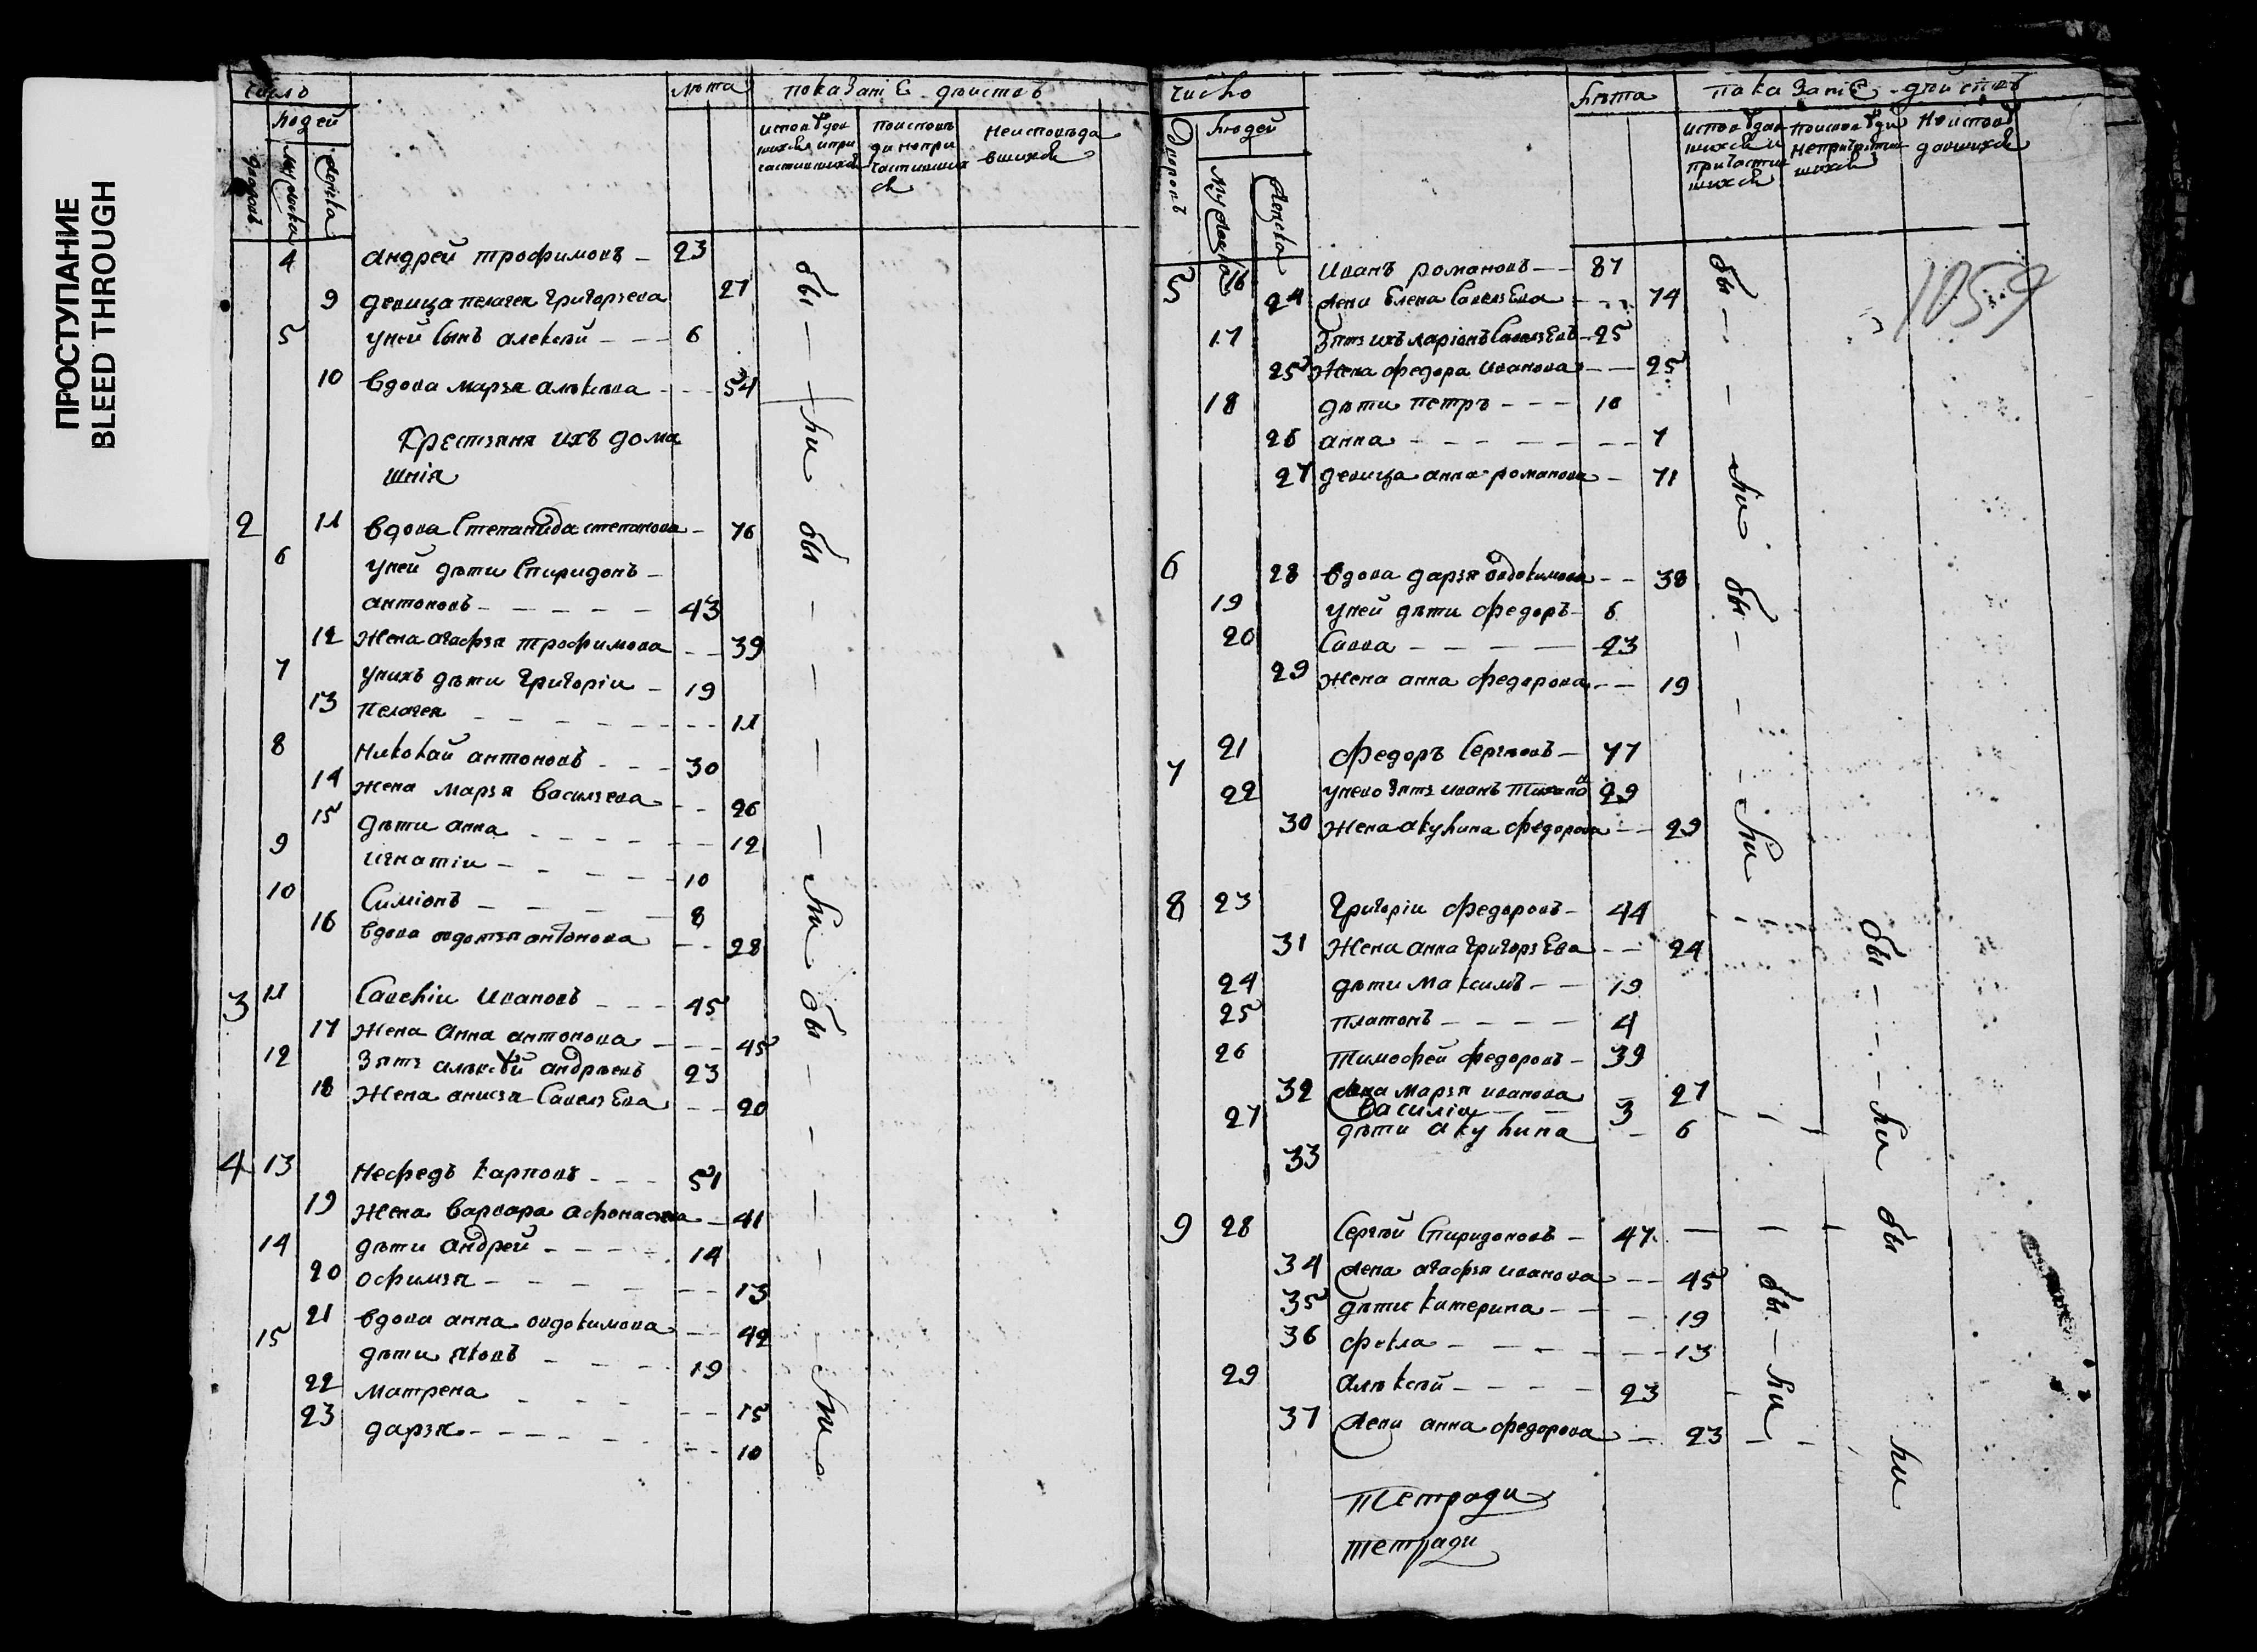 ПРОСТУПАНИЕ
BLEED THROUGH
число лѣта показаніе дѣиствъ
людей
дворовъ мужеска женска
исповѣдов
шихся и при
частившихся
поисповѣ
ди непри
частивших
ся
неисповѣда
вшихся
4 андрей трофимовъ — 23
9 девица пелагея григорьева 27
5 уней сынъ алексѣй — — — 6
10 вдова марья алѣксѣева — — — 54
крестьяня ихъ дома
шнія
2 11 вдова степанида степанова — 76
6 уней дѣти спиридонъ —
антоновъ — — — — — 43
12 жена агафья трофимова — — 39
7 унихъ дѣти григоріи — 19
13 пелагея — — — — — — — — 11
8 николай антоновъ — — — 30
14 жена марья васильева — — 26
15 дѣти анна — — — — — — 12
9 игнатіи — — — — — 10
10 симіонъ — — — — 8
16 вдова овдотья антонова — — 28
3 11 савелiи ивановъ — — — 45
17 жена анна антонова — — — 45
12 зять алѣксѣй андрѣевъ 23
18 жена анисья савельева — — 20
4 13 нефедъ карповъ — — — 51
19 жена варвара афонасьева — 41
14 дѣти андрей — — — — 14
20 офимья — — — — — — 13
21 вдова анна овдокимова — — 42
15 дѣти яковъ — — — — 19
22 матрена — — — — — 15
23 дарья — — — — — — — — 10
бы — — — ли
бы — — — — ли
бы — — — — ли
число лѣта паказаніе дѣиствъ
дворовъ людей
мужеска женска
исповѣдав
шихся и
причастив
шихся
поисповѣди
непричастив
шихся
неисповѣ
давшихся
1059
5 16 иванъ романовъ — — 87
24 жена елена савельева — — — 74
17 зять ихъ ларіонъ савельевъ — 25
25 жена федора иванова — — 25
18 дѣти петръ — — — 10
26 анна — — — — — — — 7
27 девица анна романова — 71
6 28 вдова дарья овдокимова — — 38
19 уней дѣти федоръ — 6
20 савва — — — — — 23
29 жена анна федорова — — 19
7 21 федоръ сергѣевъ — 77
22 унево зять иванъ 29
30 жена акулина федорова — — 29
8 23 григоріи федоровъ — 44
31 жена анна григорьева — — 24
24 дѣти максимъ — — 19
25 платонъ — — — — 4
26 тимофей федоровъ — 39
32 жена марья иванова — 27
27 василіи — — 3
33 дѣти акулина — 6
9 28 сергѣй спиридоновъ — 47
34 жена агафья иванова — — 45
35 дѣти катерина — — — 19
36 фекла — — — — — — 13
29 алѣксѣй — — — — 23
37 жена анна федорова — — 23
бы — — — ли
бы — — — ли
бы — — — ли
бы — — ли
бы ли
тетради
тетради